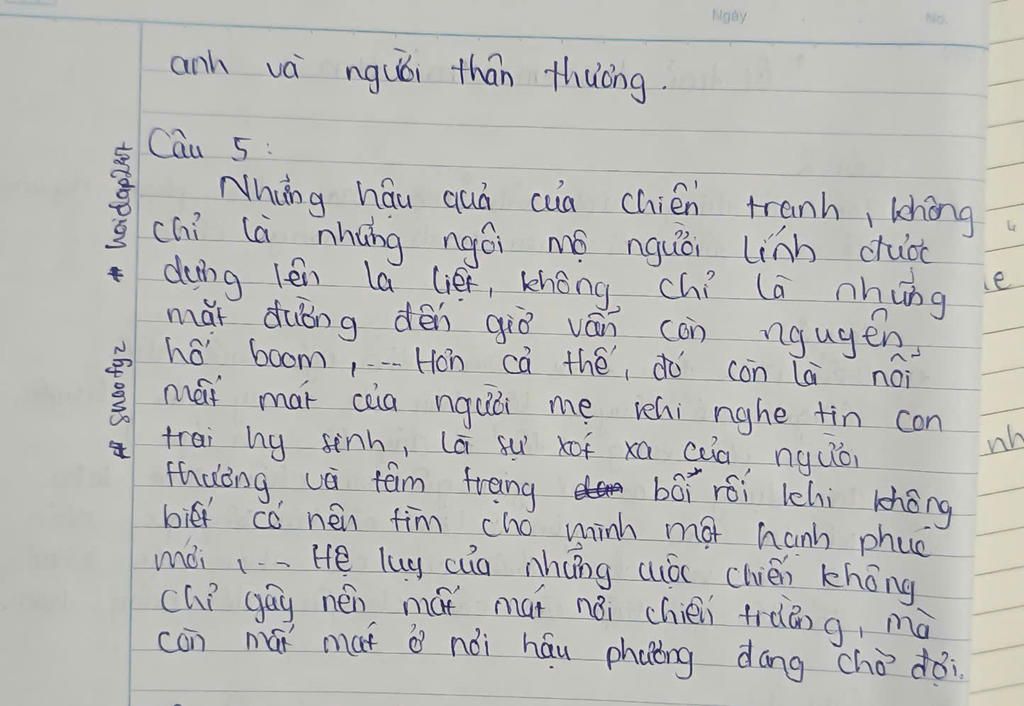 Ngày No.
anh và người thân thương.
Câu 5:
Những hậu quả của chiến tranh, không
chỉ là những ngôi mộ người lính được
dựng lên la liệt, không chỉ là những
mặt đường đến giờ vẫn còn nguyên
hố boom, ... Hơn cả thế, đó còn là nỗi
mất mát của người mẹ khi nghe tin con
trai hy sinh, là sự xót xa của người
thương và tâm trạng bối rối khi không
biết có nên tìm cho mình một hạnh phúc
mới, ... Hệ lụy của những cuộc chiến không
chỉ gây nên mất mát nơi chiến trường, mà
còn mất mát ở nơi hậu phương đang chờ đợi.
* hoidap247